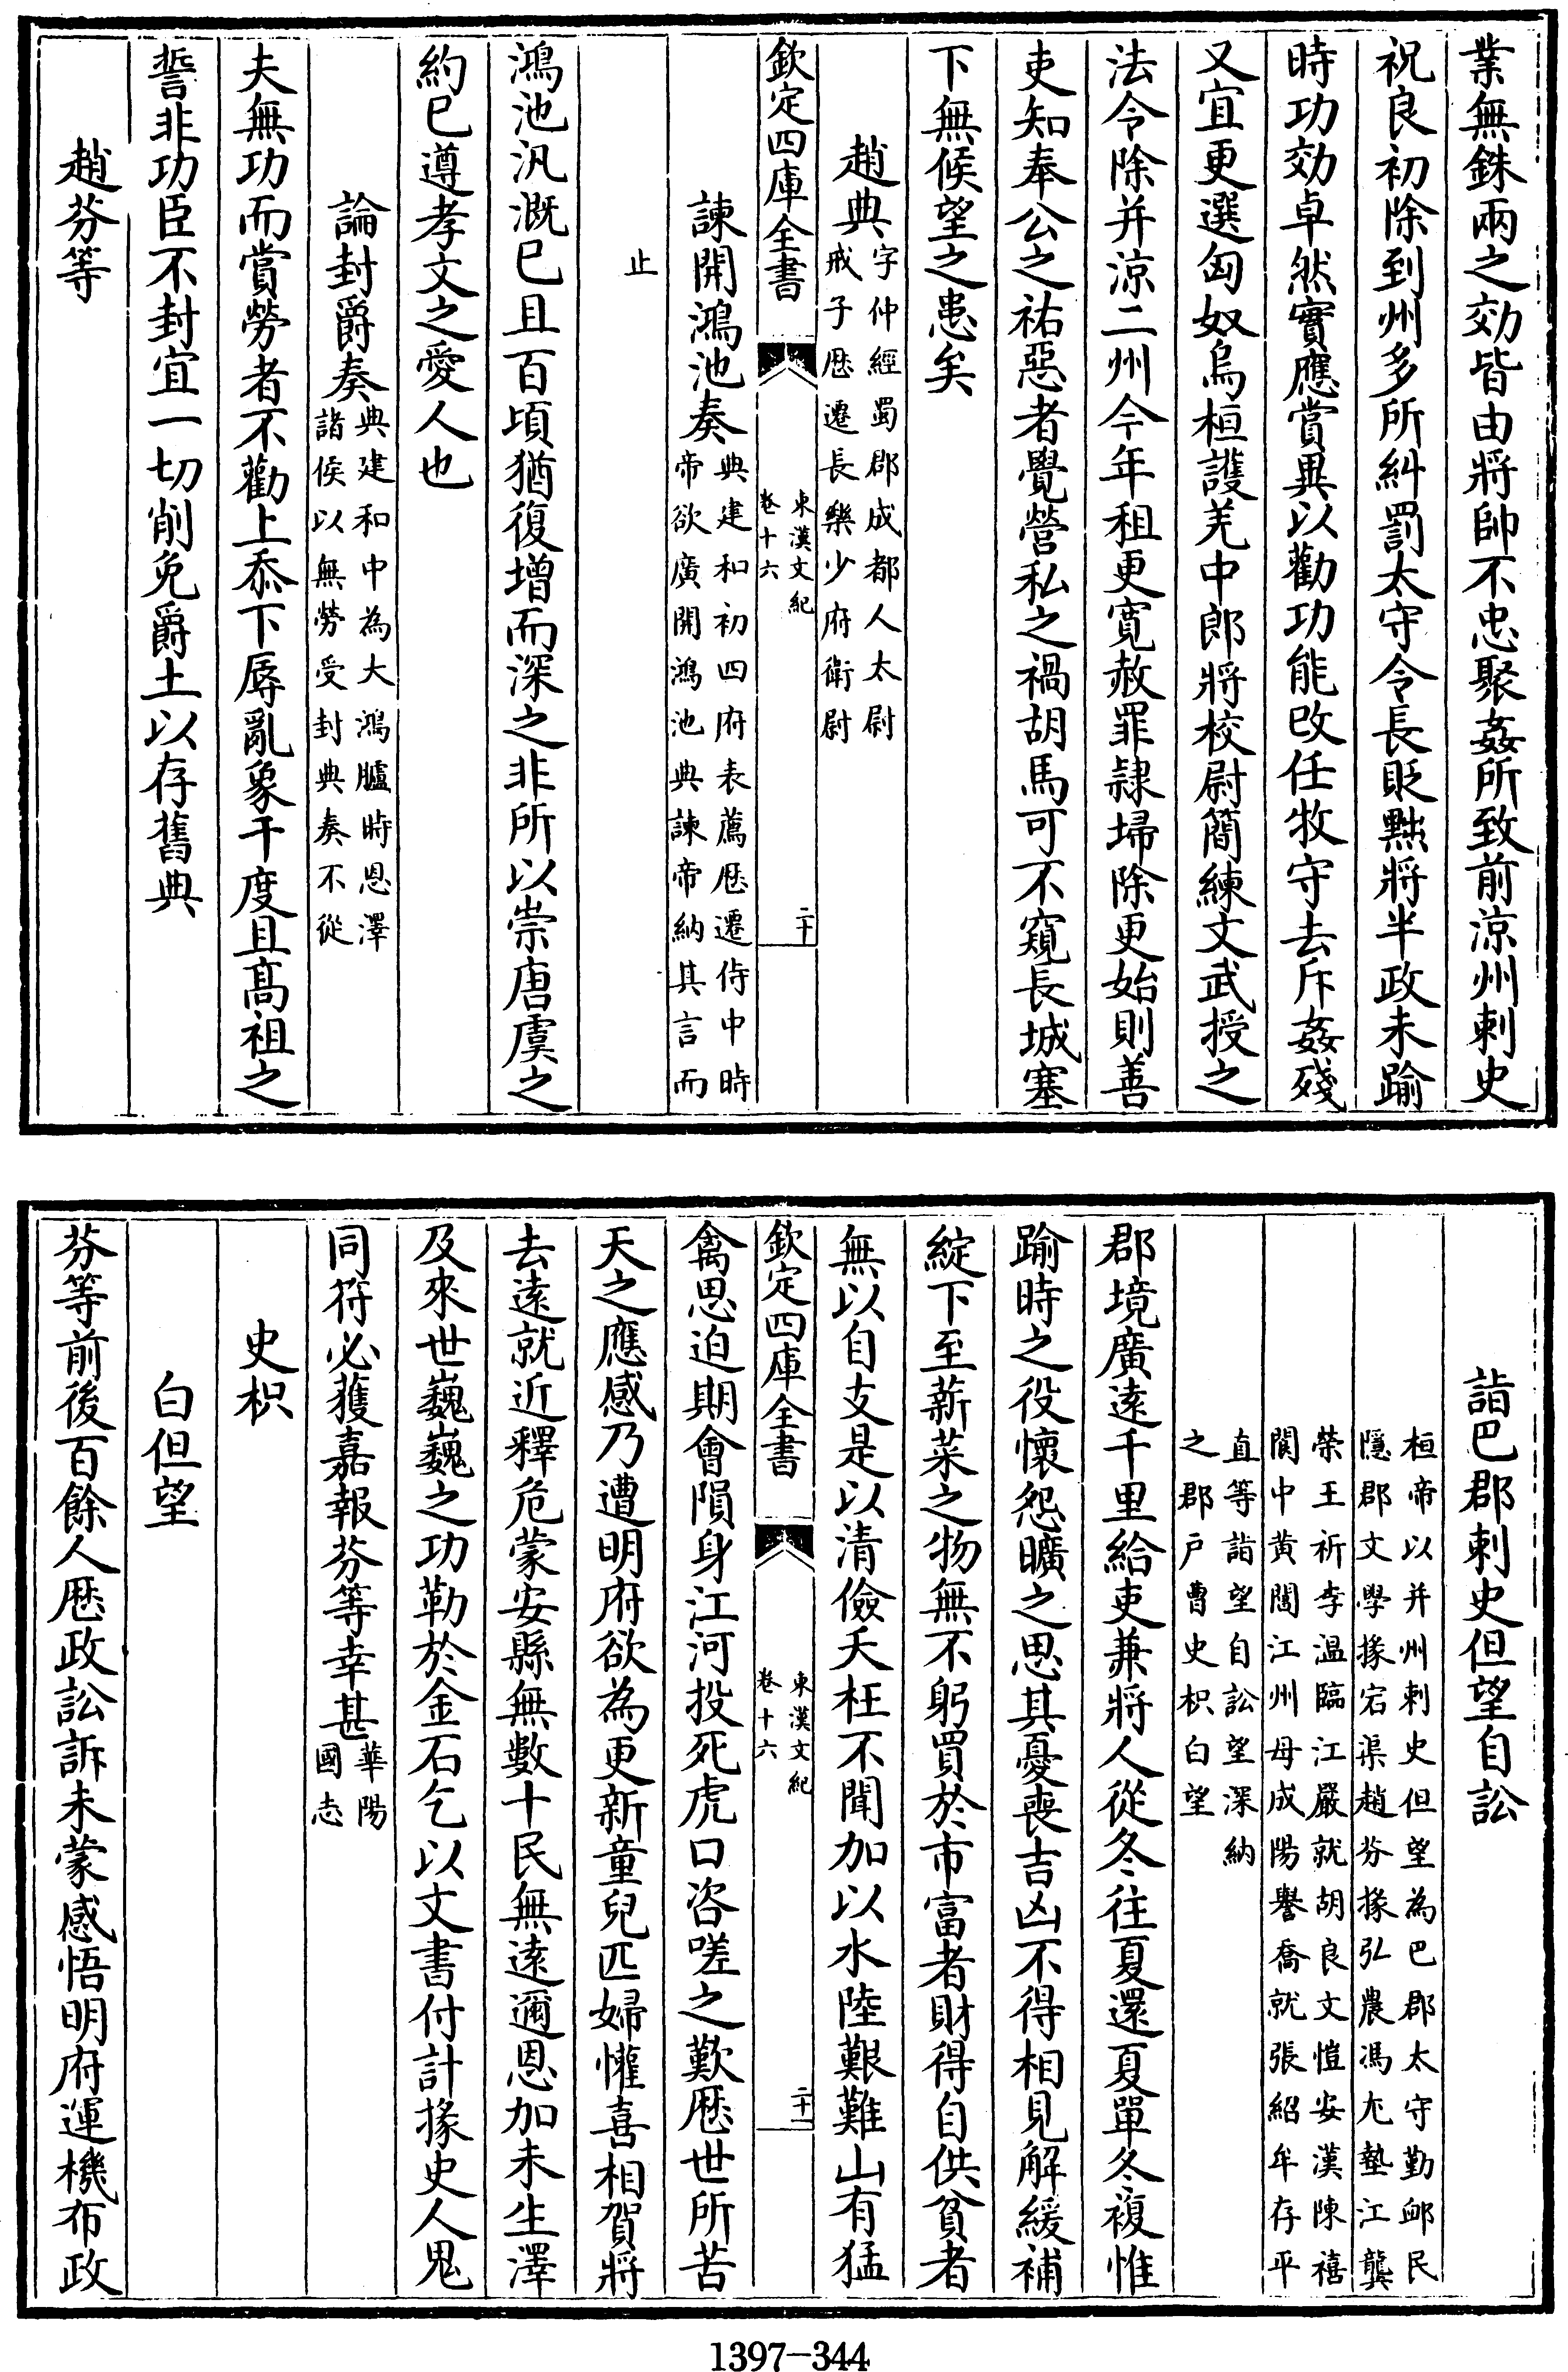 業無銖兩之効皆由將帥不忠聚姦所致前涼州刺史
祝良初除到州多所糾罰太守令長貶黜將半政未踰
時功効卓然實應賞異以勸功能改任牧守去斥姦殘
又宜更選匈奴烏桓護羌中郎將校尉簡練文武授之
法令除并涼二州今年租更寛赦罪隷埽除更始則善
吏知奉公之祐惡者覺營私之禍胡馬可不窺長城塞
下無候望之患矣
趙典字仲經蜀郡成都人太尉
戒子厯遷長樂少府衛尉
欽定四庫全書
東漢文紀
卷十六
二十
諫開鴻池奏典建和初四府表薦厯遷侍中時
帝欲廣開鴻池典諫帝納其言而
止
鴻池汎溉已且百頃猶復增而深之非所以崇唐虞之
約已遵孝文之愛人也
論封爵奏典建和中為大鴻臚時恩澤
諸侯以無勞受封典奏不從
夫無功而賞勞者不勸上忝下辱亂象干度且髙祖之
誓非功臣不封宜一切削免爵土以存舊典
趙芬等
詣巴郡刺史但望自訟
桓帝以并州刺史但望為巴郡太守勤䘏民
隱郡文學掾宕渠趙芬掾弘農馮尤墊江龔
榮王祈李溫臨江嚴就胡良文愷安漢陳禧
閬中黄閶江州母成陽譽喬就張紹牟存平
直等詣望自訟望深納
之郡戸曹史枳白望
郡境廣逺千里給吏兼將人從冬往夏還夏單冬複惟
踰時之役懷怨曠之思其憂喪吉凶不得相見解緩補
綻下至薪菜之物無不躬買於市富者財得自供貧者
無以自支是以清儉夭枉不聞加以水陸艱難山有猛
欽定四庫全書
東漢文紀
卷十六
二十一
禽思迫期會隕身江河投死虎口咨嗟之歎厯世所苦
天之應感乃遭明府欲為更新童兒匹婦懽喜相賀將
去逺就近釋危蒙安縣無數十民無逺邇恩加未生澤
及來世巍巍之功勒於金石乞以文書付計掾史人鬼
同符必獲嘉報芬等幸甚華陽
國志
史枳
白但望
芬等前後百餘人厯政訟訴未蒙感悟明府運機布政
1397-344